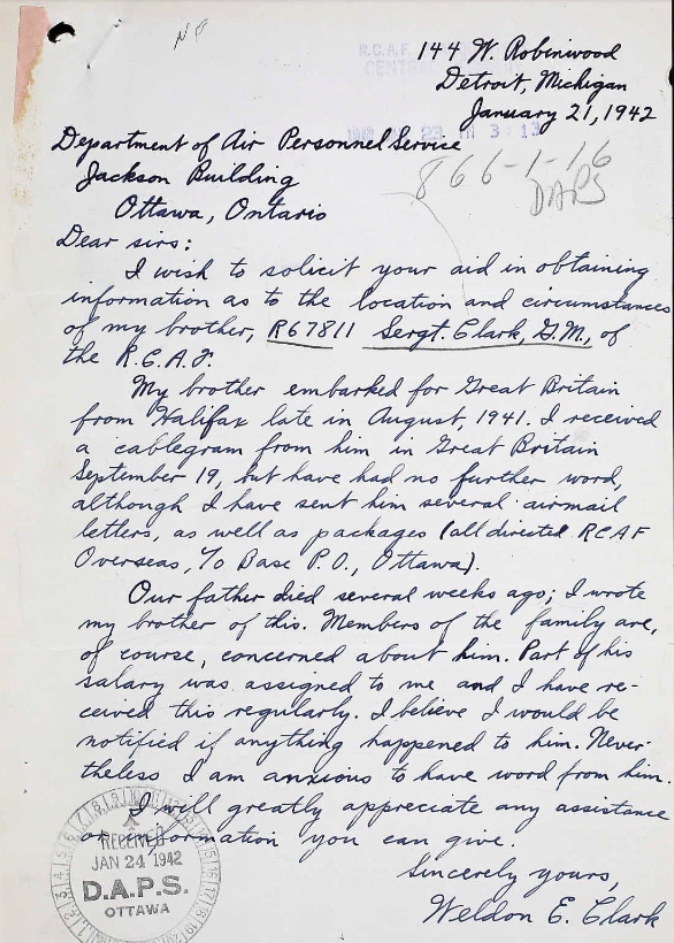 NF
R.C.A.F.
CENTRAL
144 W. Robinwood
Detroit, Michigan
January 21, 1942
23 3:13
Department of Air Personnel Service
866-1-16
Jackson Building
DAPS
Ottawa, Ontario
Dear sirs:
I wish to solicit your aid in obtaining
information as to the location and circumstances
of my brother, R67811 Sergt. Clark, G.M., of
the R.C.A.F.
My brother embarked for Great Britain
from Halifax late in August, 1941. I received
a cablegram from him in Great Britain
September 19, but have had no further word,
although I have sent him several airmail
letters, as well as packages (all directed RCAF
Overseas, % Base P.O., Ottawa).
Our father died several weeks ago; I wrote
my brother of this. Members of the family are,
of course, concerned about him. Part of his
salary was assigned to me and I have re-
ceived this regularly. I believe I would be
notified if anything happened to him. Never-
theless I am anxious to have word from him.
I will greatly appreciate any assistance
or information you can give.
Sincerely yours,
Weldon E. Clark
RECEIVED
JAN 24 1942
D.A.P.S.
OTTAWA